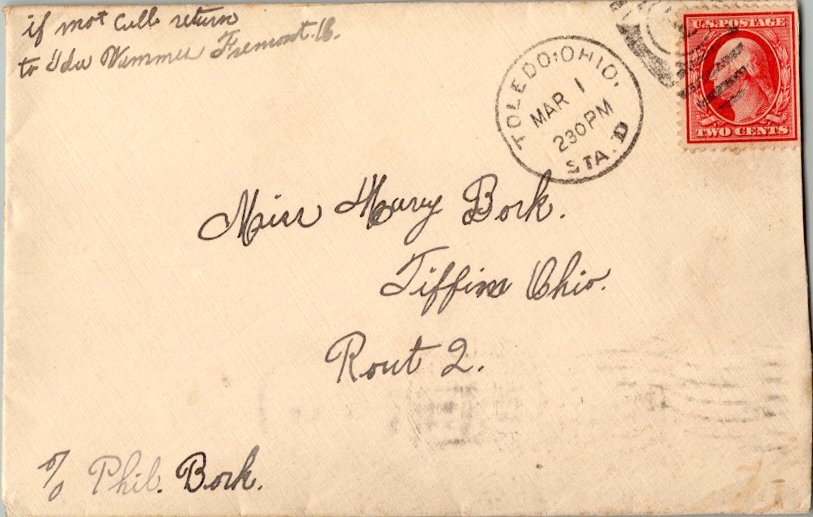 if not Call return
to Ida Wimmer Fremont. O.
TOLEDO, OHIO.
MAR 1
230PM
STA. D
U.S. POSTAGE
TWO CENTS
Miss Mary Bork.
Tiffin Ohio.
Rout 2.
% Phil. Bork.